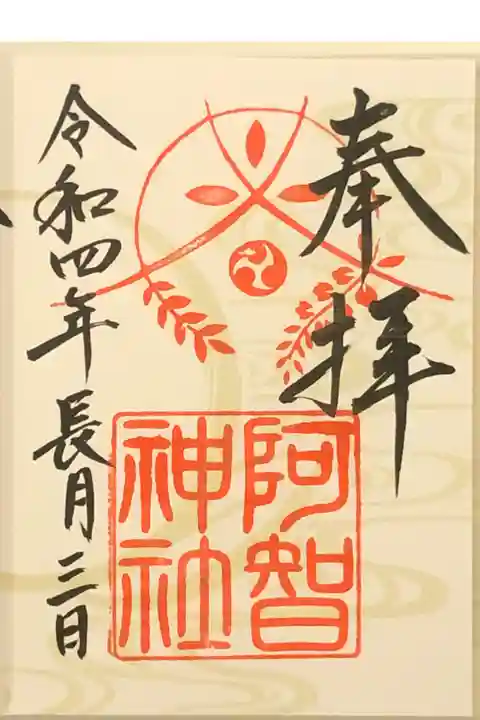 奉拝
阿智
神社
令和四年長月三日